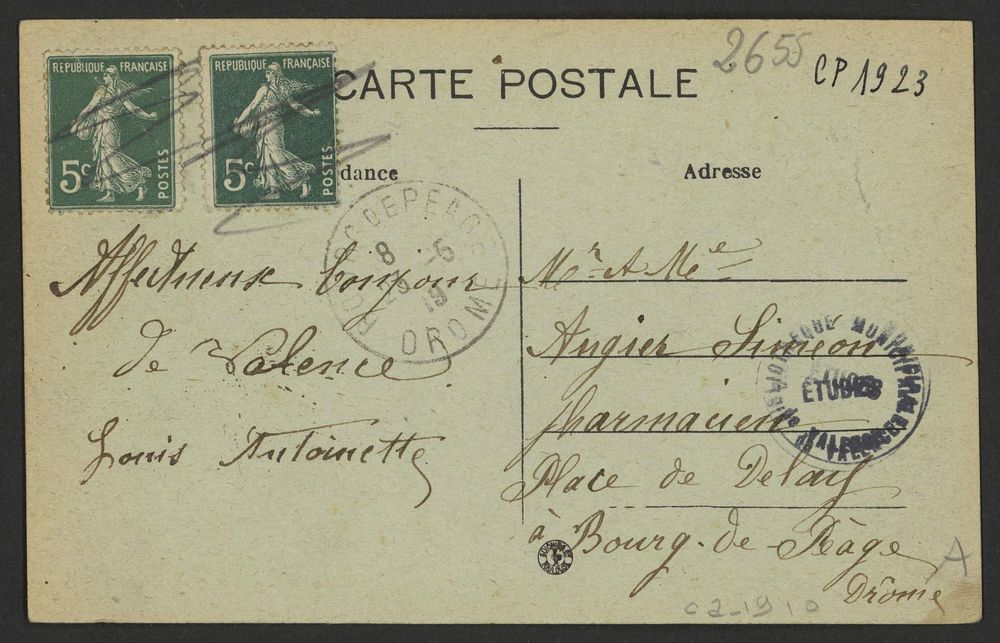 RÉPUBLIQUE FRANÇAISE
5c POSTES
RÉPUBLIQUE FRANÇAISE
5c POSTES
CARTE POSTALE
2655
CP 1923
dance
Adresse
BOURG DE PEAGE
8 - 5
19
DROME
Affectueux bonjour
de Valence
Louis Antoinette
Mr A Mee
Augier Siméon
pharmacien
Place de Delay
à Bourg-de-Péage
Drôme
BIBLIOTHEQUE MUNICIPALE
ETUDES
DE VALENCE
A